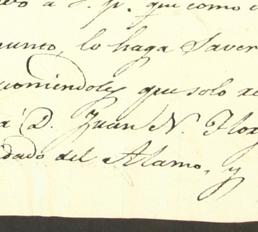 a S. P. que como
lo haga saver
poniéndoles que solo re
á D. Juan N. Flo
dado del Alamo, y